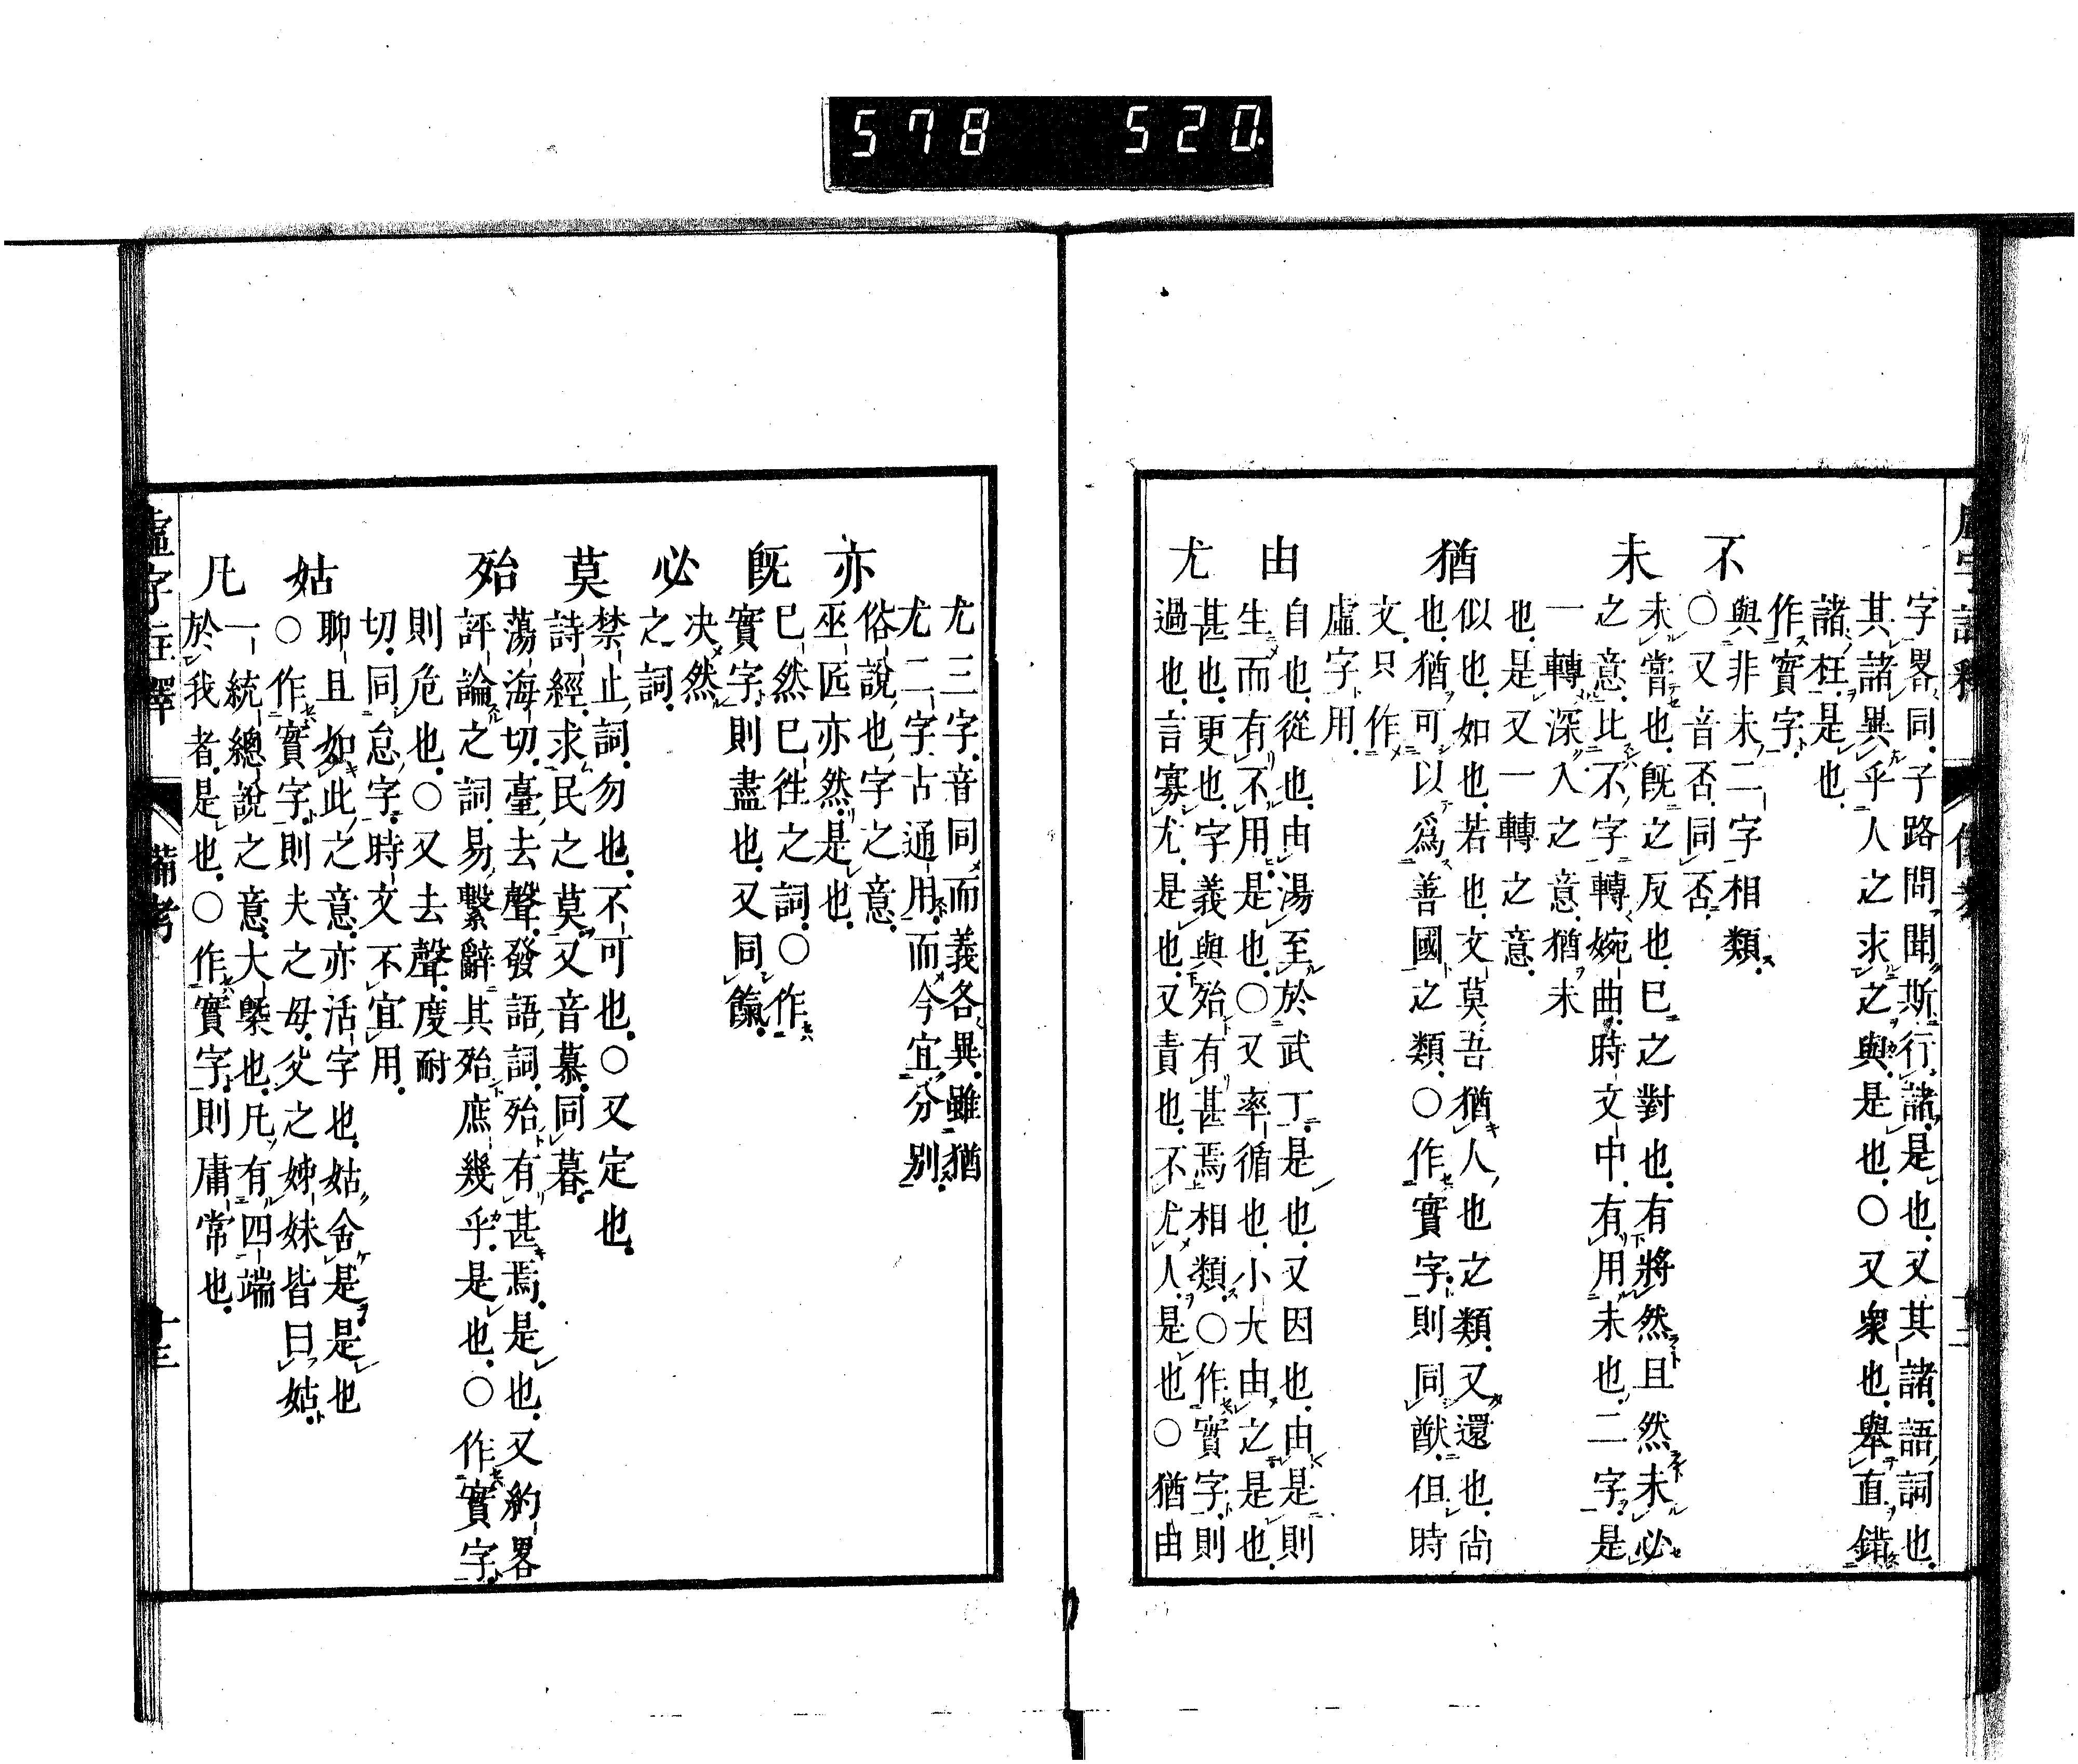 578 520
字畧同子路問聞斯行諸是也又其諸語詞也
其諸異乎人之求之與是也〇又衆也舉直錯
諸枉是也
作實字
不
與非未二字相類
〇又音否同否
未
未嘗也既之反也已之對也有將然且然未必
之意比不字轉婉曲時文中有用未也二字是
一轉深入之意猶未
也是又一轉之意
猶
似也如也若也文莫吾猶人也之類又還也尚
也猶可以爲善國之類〇作實字則同猷但時
文只作
虛字用
由
自也從也由湯至於武丁是也又因也由是則
生而有不用是也〇又率循也小大由之是也
尤
甚也更也字義與殆有甚焉相類〇作實字則
過也言寡尤是也又責也不尤人是也〇猶由
尤三字音同而義各異雖猶
尤二字古通用而今宜分別
亦
俗說也字之意
巫匠亦然是也
既
已然已往之詞〇作
實字則盡也又同餼
必
決然
之詞
莫
禁止詞勿也不可也〇又定也
詩經求民之莫又音慕同暮
殆
蕩海切臺去聲發語詞殆有甚焉是也又約畧
評論之詞易繫辭其殆庶幾乎是也〇作實字
則危也〇又去聲度耐
切同怠字時文不宜用
姑
聊且如此之意亦活字也姑舍是是也
〇作實字則夫之母父之姊妹皆曰姑
凡
一統總說之意大槩也凡有四端
於我者是也〇作實字則庸常也
虛字註釋 備考 十三